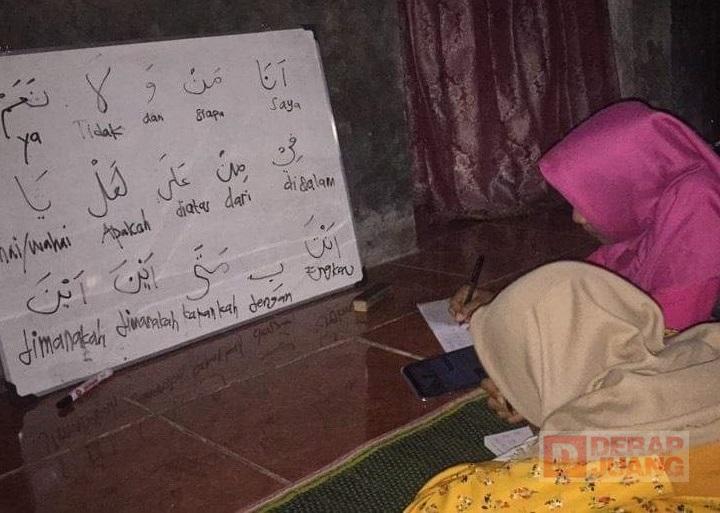 اَنَا مَنْ وَ لَا نَعَمْ
ya Tidak dan siapa Saya
فِيْ مِنْ عَلَى هَلْ يَا
hai/wahai Apakah diatas dari didalam
اَنْتَ بِ مَتَى اَيْنَ اَيْنَ
dimanakah dimanakah kapankah dengan Engkau
DERAP
JUANG